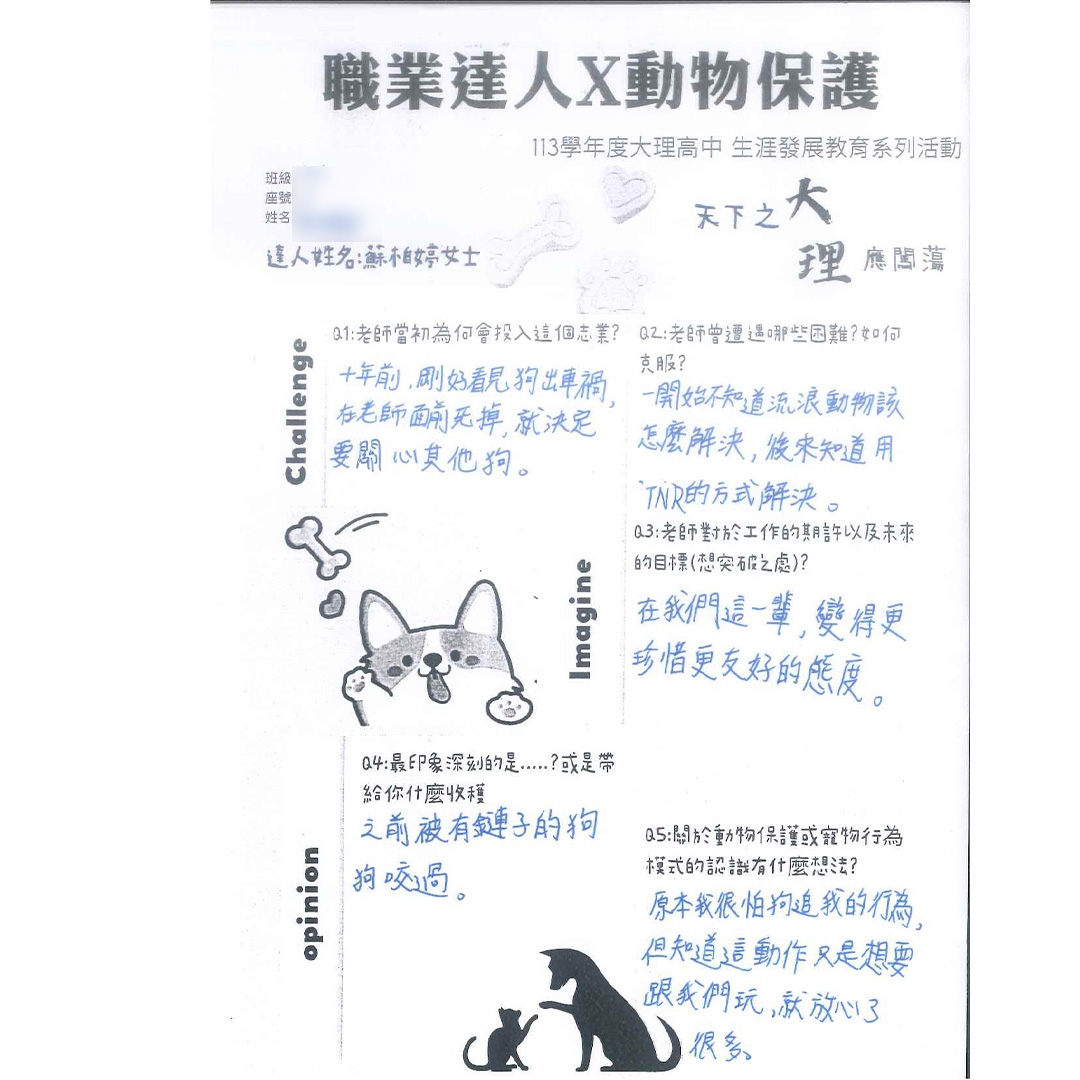 職業達人X動物保護
113學年度大理高中 生涯發展教育系列活動
班級
座號
姓名
天下之大
理應闖蕩
達人姓名:蘇柏婷女士
Challenge
Q1:老師當初為何會投入這個志業?
十年前,剛好看見狗出車禍,
在老師面前死掉,就決定
要關心其他狗。
Q2:老師曾遭遇哪些困難?如何
克服?
一開始不知道流浪動物該
怎麼解決,後來知道用
TNR的方式解決。
Imagine
Q3:老師對於工作的期許以及未來
的目標(想突破之處)?
在我們這一輩,變得更
珍惜更友好的態度。
opinion
Q4:最印象深刻的是.....?或是帶
給你什麼收穫
之前被有鏈子的狗
狗咬過。
Q5:關於動物保護或寵物行為
模式的認識有什麼想法?
原本我很怕狗追我的行為,
但知道這動作只是想要
跟我們玩,就放心了
很多。